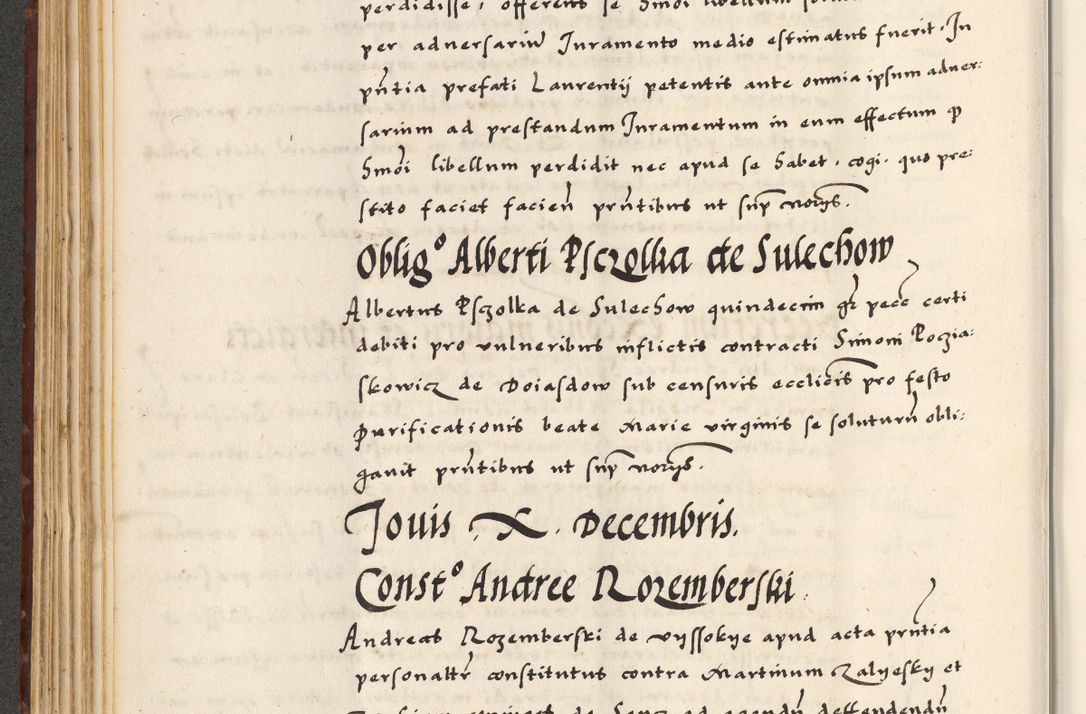 perdidisse, offerens se hmoi libellum
per adversariu Juramento medio estimatus fuerit. In
pntia prefati Laurentij petentis ante omnia ipsum adver:
sarium ad prestandum Juramentum in eum effectum ꝙ
hmoi libellum perdidit nec apud se habet. cogi. quo pre:
stito faciet facien pntibus ut sup norijs.
Obligo Alberti Psczolka de Sulechow
Albertus Psczolka de Sulechow quindecim gr pecc certi
debiti pro vulneribus inflictis contracti Simoni Poczia:
skowicz de Doiasdow sub censuris ecclicis pro festo
purificationis beate Marie virginis se soluturu obli:
gavit prntibus ut sup norijs.
Jovis .X. Decembris.
Consto Andree Rozemberski.
Andreas Rozemberski de vyssokye apud acta prntia
personaltr constitutus contra Martinum Zalyesky et